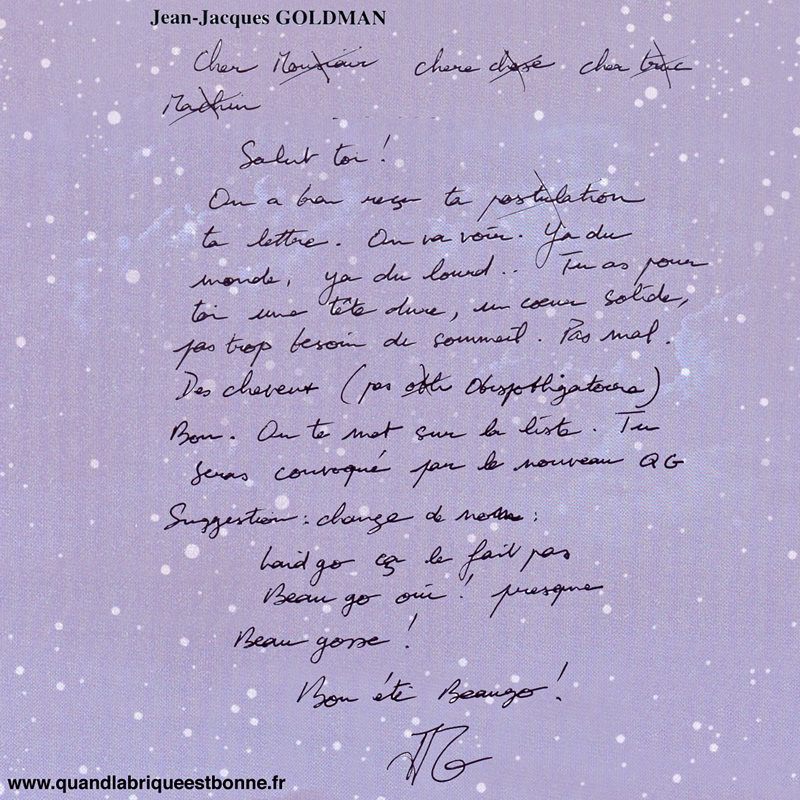 Jean-Jacques GOLDMAN
Cher Monsieur chere chose cher truc
Machin
Salut toi !
On a bien reçu ta postulation
ta lettre. On va voir. Ya du
monde, ya du lourd.. Tu as pour
toi une tête dure, un coeur solide,
pas trop besoin de sommeil. Pas mal.
Des cheveux (pas obligatoire)
Bon. On te met sur la liste. Tu
seras convoqué par le nouveau QG
Suggestion : change de nom :
Laidgo ça le fait pas
Beau go oui ! presque
Beau gosse !
Bon été Beaugo !
JJG
www.quandlabriqueestbonne.fr